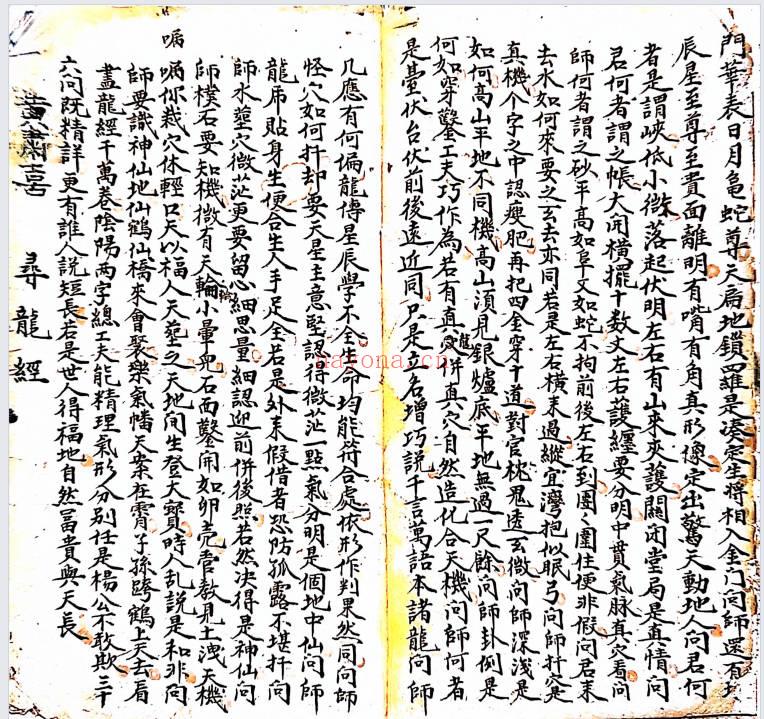 門華表日月龟蛇尊天扃地鎖四維是凑定生將相入金门问師還有
辰星至尊至貴面離明有嘴有角真形像定出驚天動地人问君何
者是謂峽低小微落起伏明左右有山來夾護關闭堂局是真情问
君何者謂之帳大闭横擺十数丈左右護纏要分明中貫氣脉真穴看问
師何者謂之砂平高如阜又如蛇不拘前後左右到團〻圍住便非假问君来
去水如何來要之玄去亦同若是左右横来過縱宜灣抱似眠弓问師扦穴是
真機个字之中認瘦肥再把四金穿十道對官枕鬼透玄微问師深浅是
如何高山平地不同機高山須見銀爐底平地無過一尺餘问師卦例是
何如穿鑿工夫巧作為若有真龍併真穴自然造化合天機问師何者
是臺伏台伏前後遠近同只是立名增巧說千言萬語本諸龍问師
几應有何偏龍傳星辰學不全夭命均能符合處依形作判果然同问師
怪穴如何扦却要天星主意堅認得微茫一點氣分明是個地中仙问師
龍虎貼身生便合生人手足全若是外来假借者恐防孤露不堪扦问
師水壟穴微茫更要留心細思量細認迎前併後照若然决得是神仙问
師樸石要知機微有天輪小暈皃石面鑿開如卵壳管教見土洩天機
嘱你裁穴休輕口天以福人天壟之天地间生登天寶時人乱説是和非问
師要識神仙地仙鶴仙橋來會聚樂氣幡天案在霄子孫跨鶴上天去看
盡龍經千萬卷陰陽两字總工夫能精理氣形分别任是楊公不敢欺三十
六问既精詳更有誰人説短長若是世人得福地自然冨貴與天長
嘱
黄肅喜
尋龍經
nayona.cn